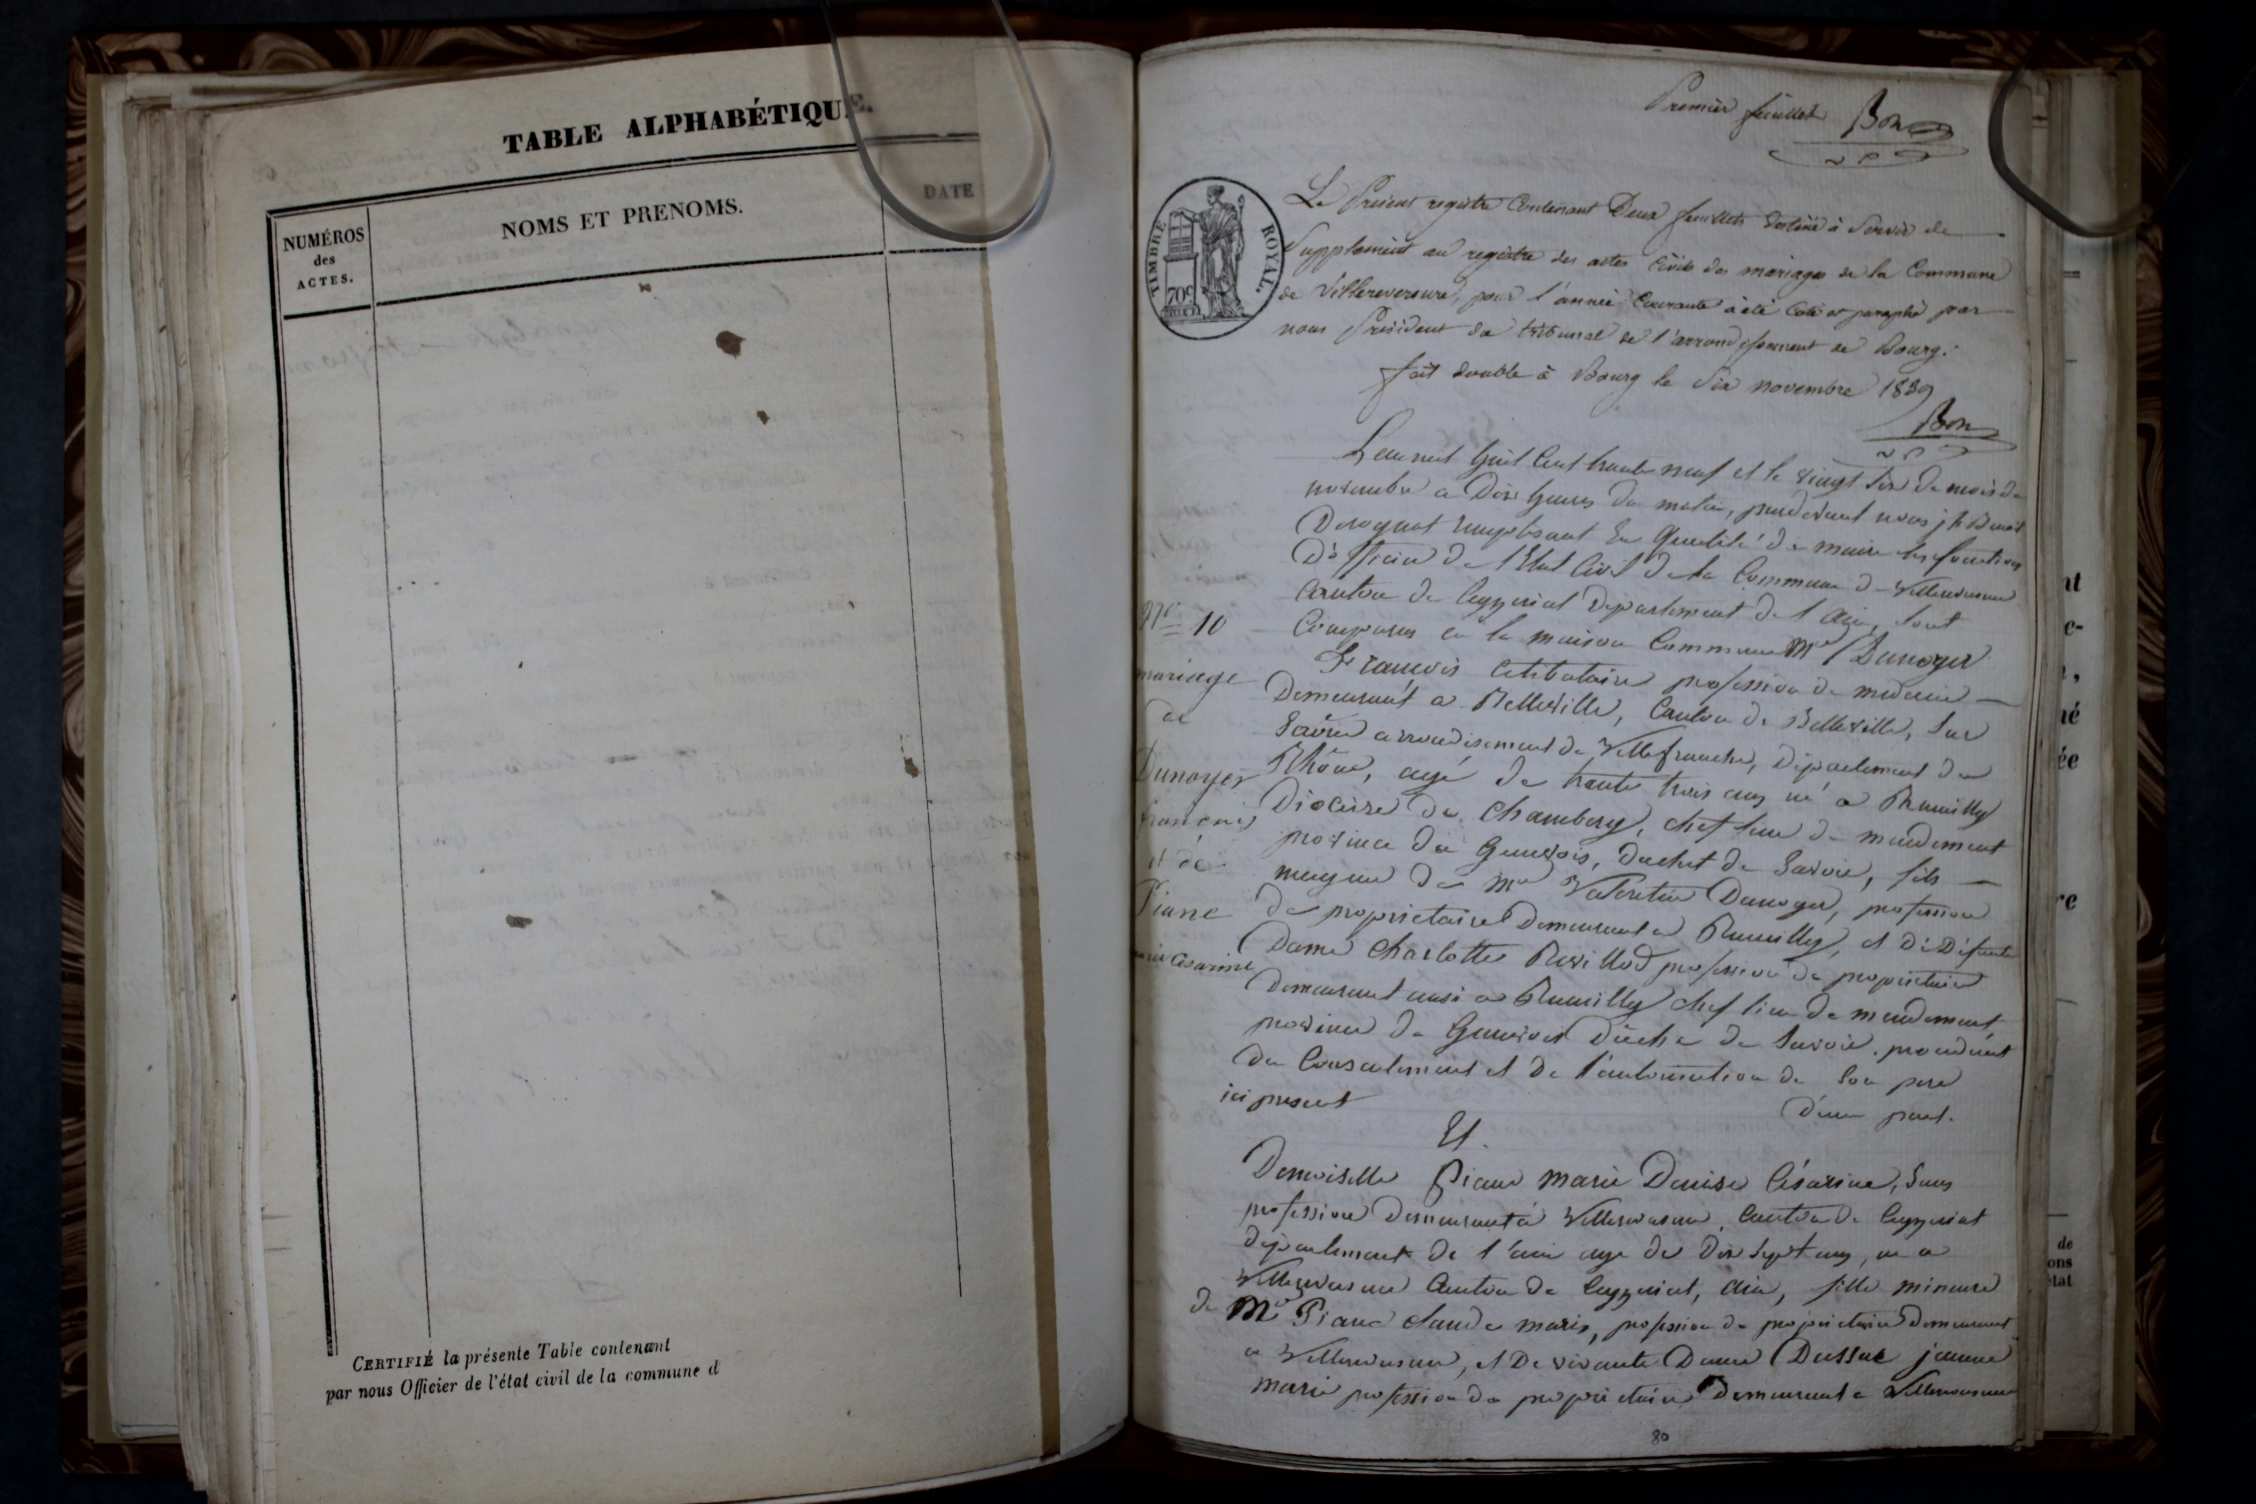 TABLE ALPHABÉTIQUE.
NUMÉROS
des
ACTES.
NOMS ET PRENOMS.
DATE
CERTIFIÉ la présente Table contenant
par nous Officier de l'état civil de la commune d
Premier feuillet Bon
TIMBRE ROYAL.
Le Présent registre Contenant Deux feuillets destiné à Servir de
Supplément au registre des actes Civils des mariages de la Commune
de Villereversure, pour l'année Courante a été Coté et paraphé par
nous Président du tribunal de l'arrondissement de Bourg.
fait double à Bourg le Six novembre 1839
Bon
L'an mil huit Cent trente neuf et le vingt Six du mois de
novembre a Dix heures du matin, pardevant nous jh Benoit
remplissant En Qualité de maire les fonctions
D'officier De l'Etat Civil De la Commune de Villereversure
Canton de Ceyzeriat Département de l'Ain, Sont
Comparus en la maison Commune Mr Dunoyer
François Célibataire profession de médecin
Demeurant a Belleville, Canton de Belleville, Sur
Saône arrondissement de Villefranche, Département du
Rhône, agé de trente trois ans né a Rumilly
Diocèse de Chambery, chef lieu de mandement
province du Genevois, Duché de Savoie, fils
majeur de Mr Valentin Dunoyer, profession
de propriétaire Demeurant a Rumilly, et de Défunte
Dame Charlotte profession de propriétaire
Demeurant aussi a Rumilly chef lieu de mandement
province de Genevois Duché de Savoie. procédant
du Consentement et De l'autorisation de Son père
ici présent
D'une part.
Et.
Demoiselle Piane marie Denise Césarine, Sans
profession Demeurant à Villereversure, Canton de Ceyzeriat
département de l'ain age de Dix Sept ans, né a
Villereversure Canton de Ceyzeriat, Ain, fille mineure
de Mr Piane claude marie, profession de propriétaire Demeurant
a Villereversure, et De vivante Dame Dussuc jeanne
marie profession de propriétaire Demeurant a Villereversure
No 10
mariage
de
Dunoyer
françois
et de
Piane
marie Césarine
80